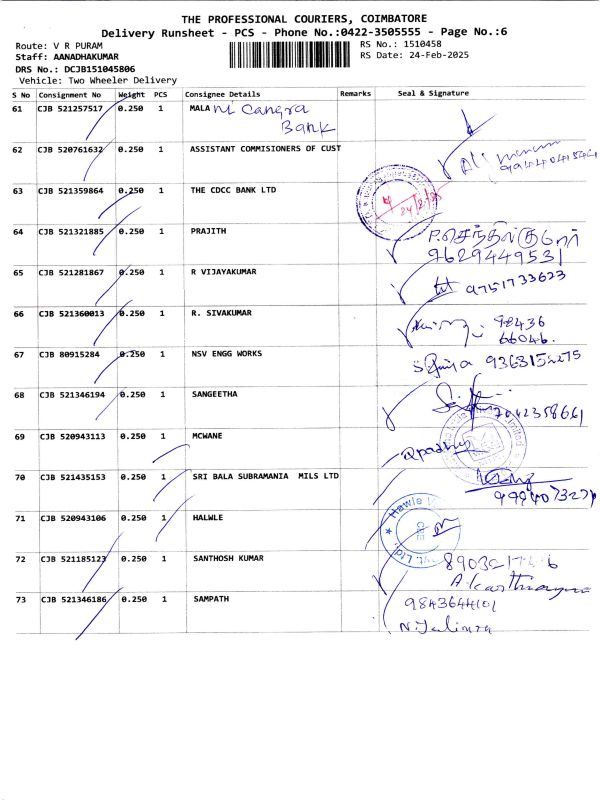 THE PROFESSIONAL COURIERS, COIMBATORE
Delivery Runsheet - PCS - Phone No.:0422-3505555 - Page No.:6
Route: V R PURAM
RS No.: 1510458
Staff: AANADHAKUMAR
RS Date: 24-Feb-2025
DRS No.: DCJB151045806
Vehicle: Two Wheeler Delivery
S No Consignment No Weight PCS Consignee Details Remarks Seal & Signature
61 CJB 521257517 0.250 1 MALA
Bank
62 CJB 520761632 0.250 1 ASSISTANT COMMISIONERS OF CUST
63 CJB 521359864 0.250 1 THE CDCC BANK LTD
64 CJB 521321885 0.250 1 PRAJITH
9629449531
65 CJB 521281867 0.250 1 R VIJAYAKUMAR
9751733623
66 CJB 521360013 0.250 1 R. SIVAKUMAR 98436
66046.
67 CJB 80915284 0.250 1 NSV ENGG WORKS
68 CJB 521346194 0.250 1 SANGEETHA
7042358661
69 CJB 520943113 0.250 1 MCWANE
70 CJB 521435153 0.250 1 SRI BALA SUBRAMANIA MILS LTD
71 CJB 520943106 0.250 1 HALWLE
Hawle
72 CJB 521185123 0.250 1 SANTHOSH KUMAR
73 CJB 521346186 0.250 1 SAMPATH 9843644101